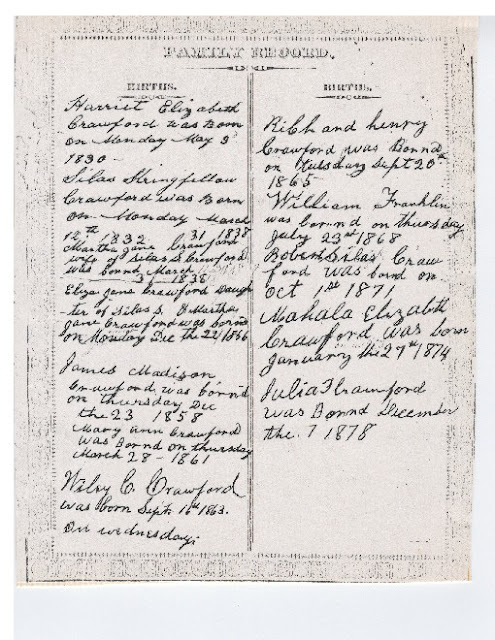 FAMILY RECORD.
BIRTHS.
Harriet Elizabeth
Crawford was Born
on Monday May 3
1830 -
Silas Stringfellow
Crawford was Born
on Monday March
12th 1832 31 1838
Martha Jane Crawford
wife of Silas S Crawford
was bornd March
1838
Eliza Jane Crawford daugh
-ter of Silas S. & Martha
Jane Crawford was born
on Monday Dec the 22/1856
James Madison
Crawford was bornd
on thursday Dec
the 23 1858
Mary ann Crawford
was Bornd on thursday
March 28 - 1861
Wiley C. Crawford
was born Sept. 16th 1863.
on wednesday.
BIRTHS.
Richand henry
Crawford was Bornd
on tuesday Sept 20th
1865
William Franklin
was bornnd on thursday
July 23rd 1868
Robert Silas Craw
ford was bornd on
Oct 1st 1871
Mahala Elizabeth
Crawford was born
January the 29th 1874
Julia F Crawford
was Bornd December
the 7 1878